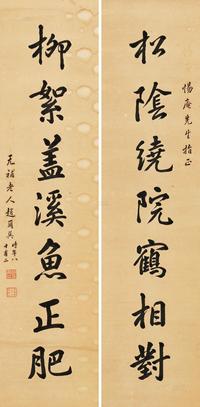 惕庵先生指正
松陰繞院鶴相對
柳絮盖溪魚正肥
无補老人趙爾巽時年八
十有二